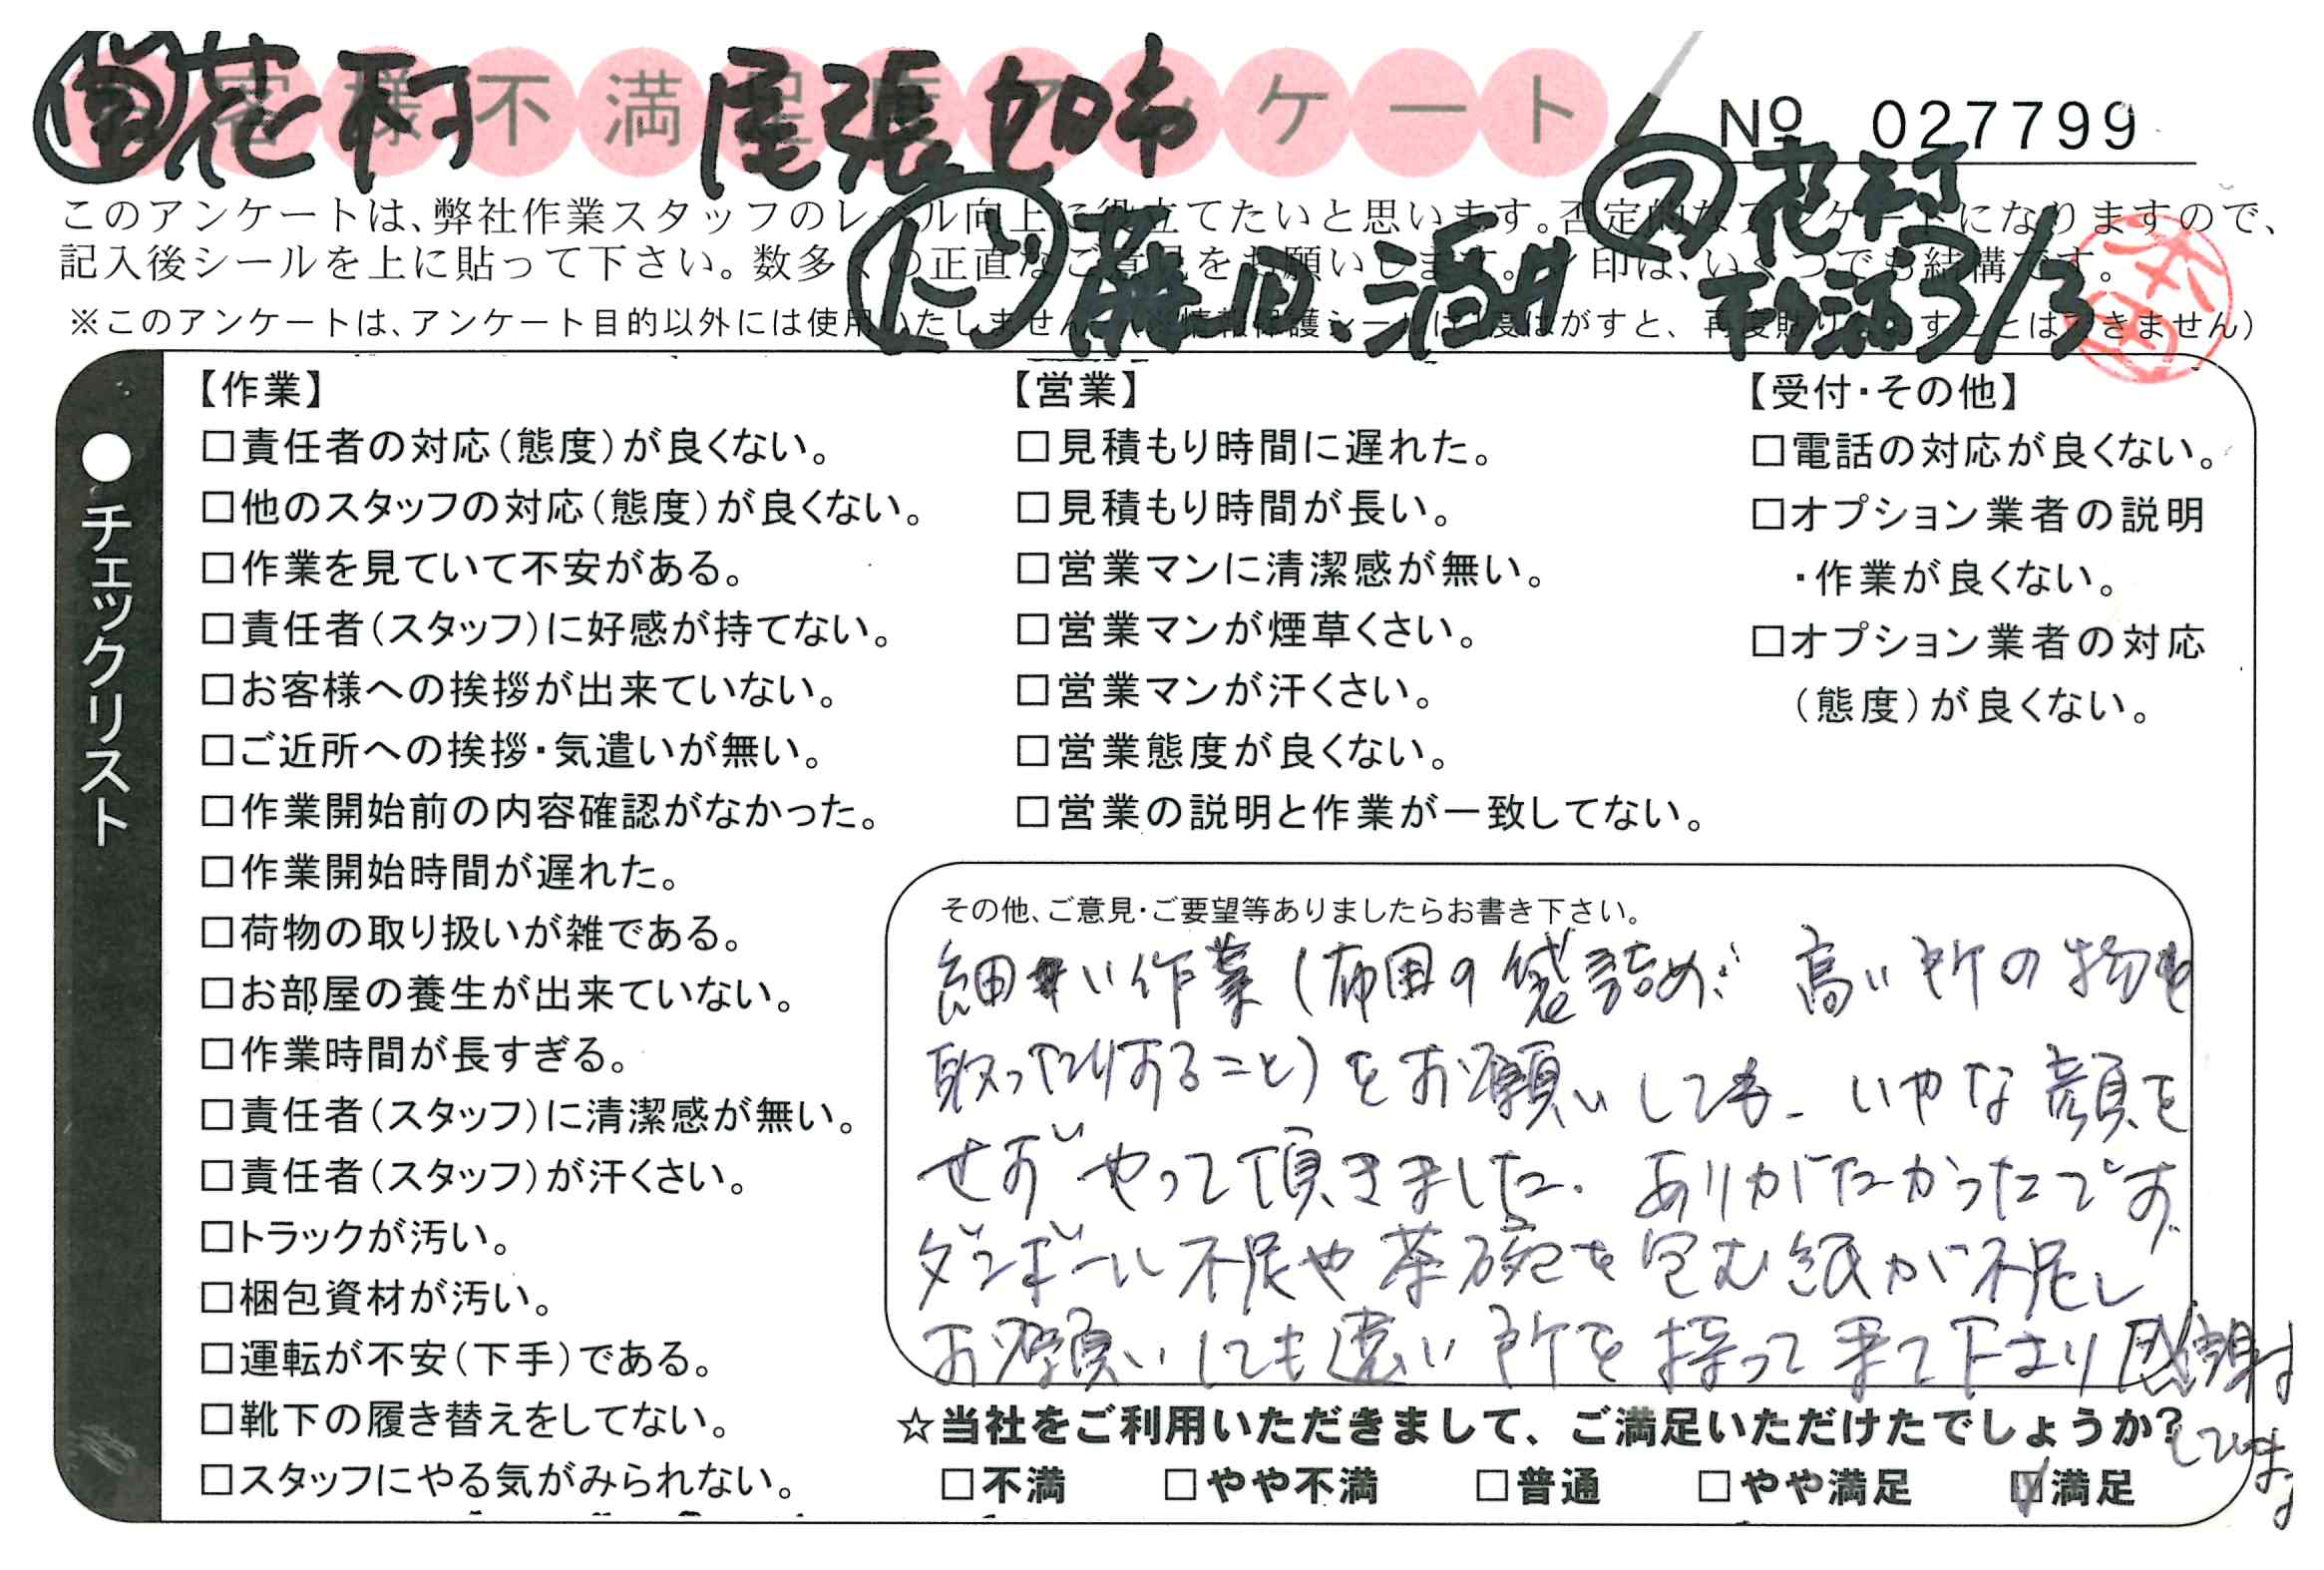 お客様不満足度アンケート
№ 027799
営 花村 尾張旭市
ス 花村
に 藤田、酒井
3/3
このアンケートは、弊社作業スタッフのレベル向上に役立てたいと思います。否定的なアンケートになりますので、
記入後シールを上に貼って下さい。数多くの正直なご意見をお願いします。レ印は、いくつでも結構です。
※このアンケートは、アンケート目的以外には使用いたしません。(個人情報保護シールは1度はがすと、再度貼りなおすことはできません)
●チェックリスト
【作業】
□責任者の対応(態度)が良くない。
□他のスタッフの対応(態度)が良くない。
□作業を見ていて不安がある。
□責任者(スタッフ)に好感が持てない。
□お客様への挨拶が出来ていない。
□ご近所への挨拶・気遣いが無い。
□作業開始前の内容確認がなかった。
□作業開始時間が遅れた。
□荷物の取り扱いが雑である。
□お部屋の養生が出来ていない。
□作業時間が長すぎる。
□責任者(スタッフ)に清潔感が無い。
□責任者(スタッフ)が汗くさい。
□トラックが汚い。
□梱包資材が汚い。
□運転が不安(下手)である。
□靴下の履き替えをしてない。
□スタッフにやる気がみられない。
【営業】
□見積もり時間に遅れた。
□見積もり時間が長い。
□営業マンに清潔感が無い。
□営業マンが煙草くさい。
□営業マンが汗くさい。
□営業態度が良くない。
□営業の説明と作業が一致してない。
【受付・その他】
□電話の対応が良くない。
□オプション業者の説明
・作業が良くない。
□オプション業者の対応
(態度)が良くない。
その他、ご意見・ご要望等ありましたらお書き下さい。
細かい作業(布団の袋詰め、高い所の物を
取ったりすること)をお願いしても、いやな顔を
せずやって頂きました。ありがたかったです。
ダンボール不足や茶碗を包む紙が不足し
お願いしても遠い所を持って来て下さり感謝
しています
☆当社をご利用いただきまして、ご満足いただけたでしょうか?
□不満 □やや不満 □普通 □やや満足 ☑満足